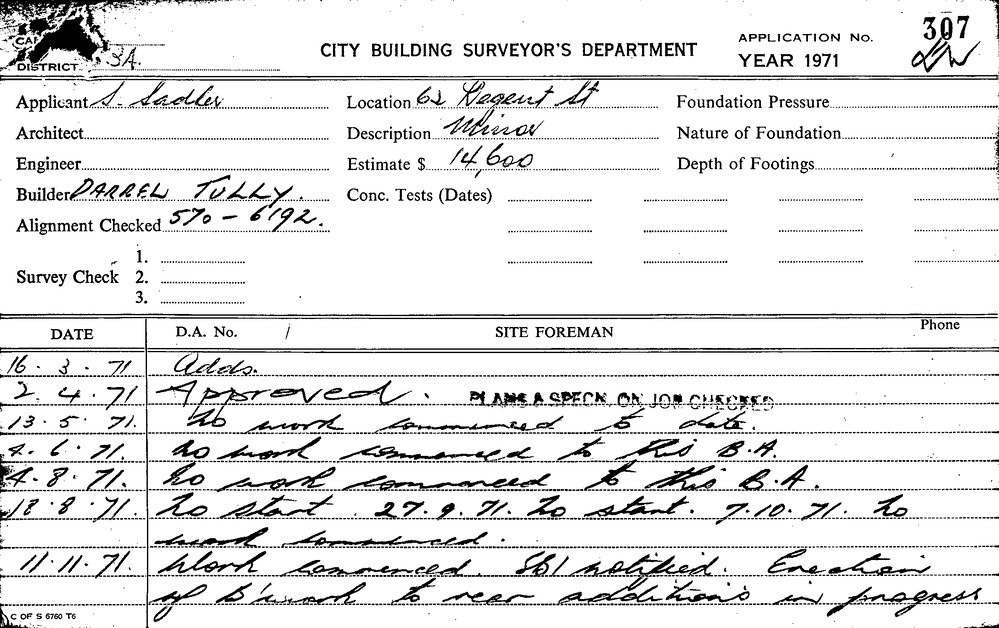 307
CITY BUILDING SURVEYOR'S DEPARTMENT
APPLICATION No.
YEAR 1971
DISTRICT 3A.
Applicant S. Sadler
Location 62 Regent St
Foundation Pressure
Architect
Description Minor
Nature of Foundation
Engineer
Estimate $ 14,600
Depth of Footings
Builder DARREL TULLY.
Conc. Tests (Dates)
Alignment Checked 570 - 6192.
Survey Check 1.
2.
3.
DATE D.A. No. / SITE FOREMAN Phone
16. 3. 71 Adds.
2. 4. 71 Approved. PLANS & SPECN. ON JOB CHECKED
13. 5. 71. No work commenced to date.
4. 6. 71. No work commenced to this B.A.
4. 8. 71. No work commenced to this B.A.
18. 8. 71. No start. 27.9.71. No start. 7.10.71. No
work commenced.
11.11.71. Work commenced. notified. Erection
of B'work to rear additions in progress
C OF S 6760 T6